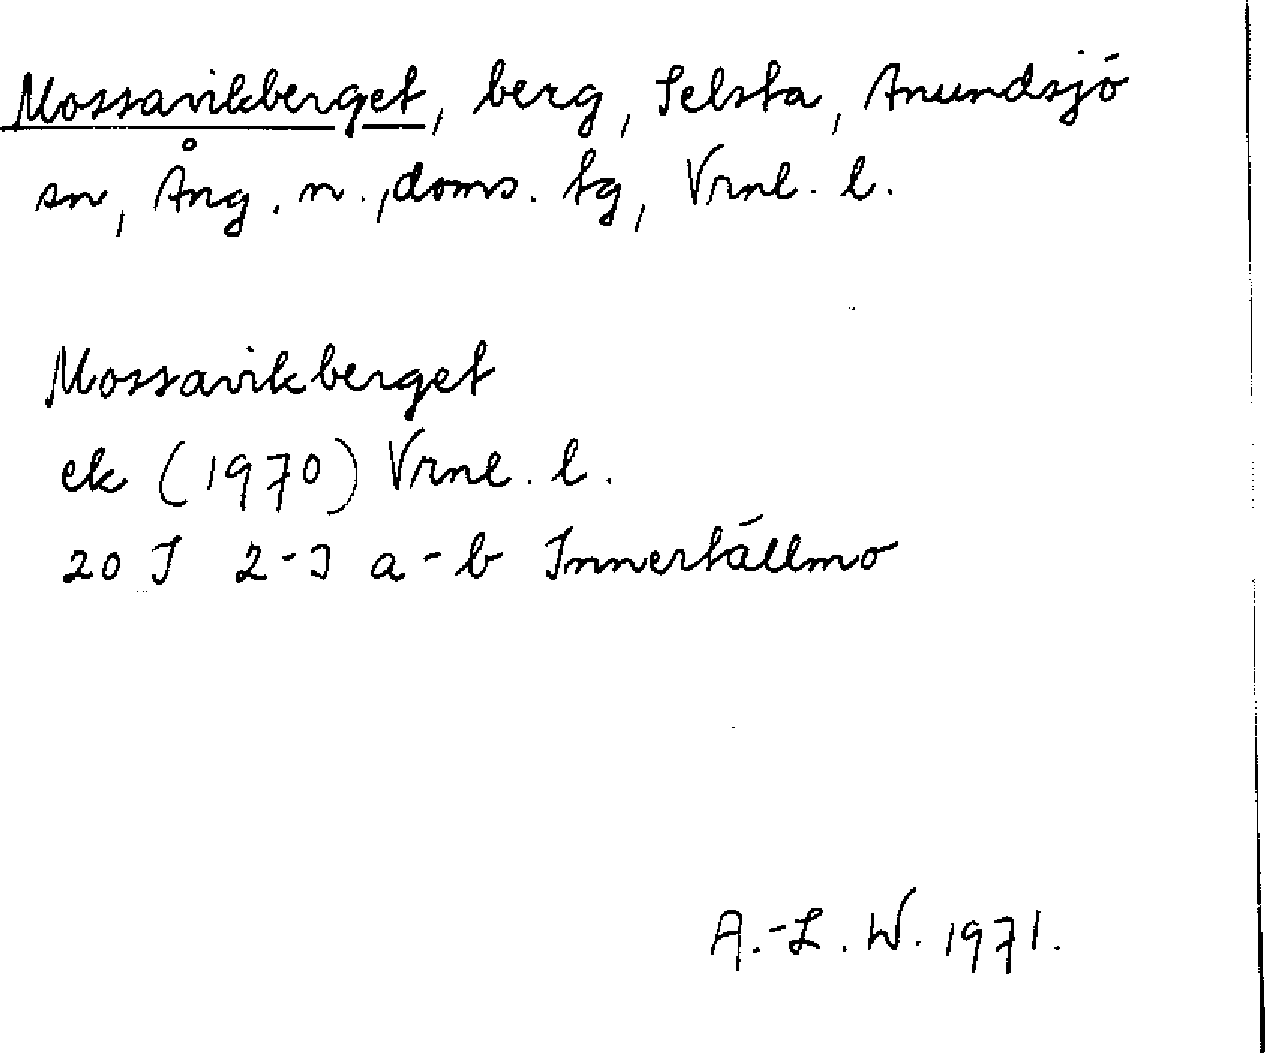 Mossavikberget, berg, Selsta, Anundsjö
sn, Ång. n., doms. tg, Vrnl. l.
Mossavikberget
ek (1970) Vrnl. l.
20 J 2-3 a-b Innertällmo
A.-L. W. 1971.